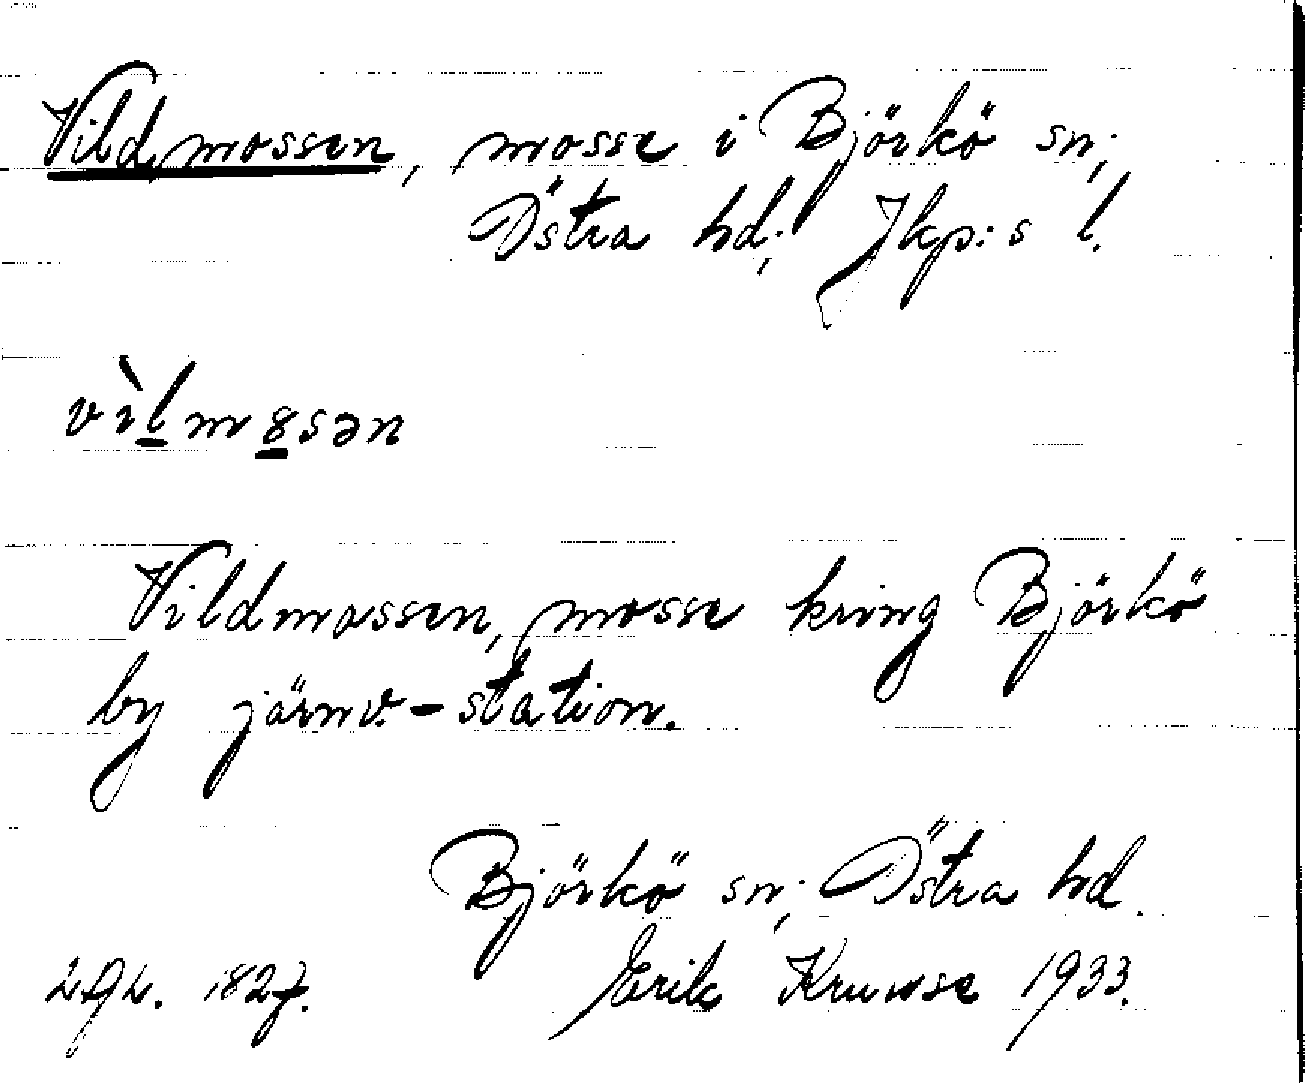 Vildmossen, mosse i Björkö sn;
Östra hd; Jkp:s l.
vìlmȣsən
Vildmossen, mosse kring Björkö
by järnv.-station.
Björkö sn; Östra hd.
1827. Erik Kruuse 1933.